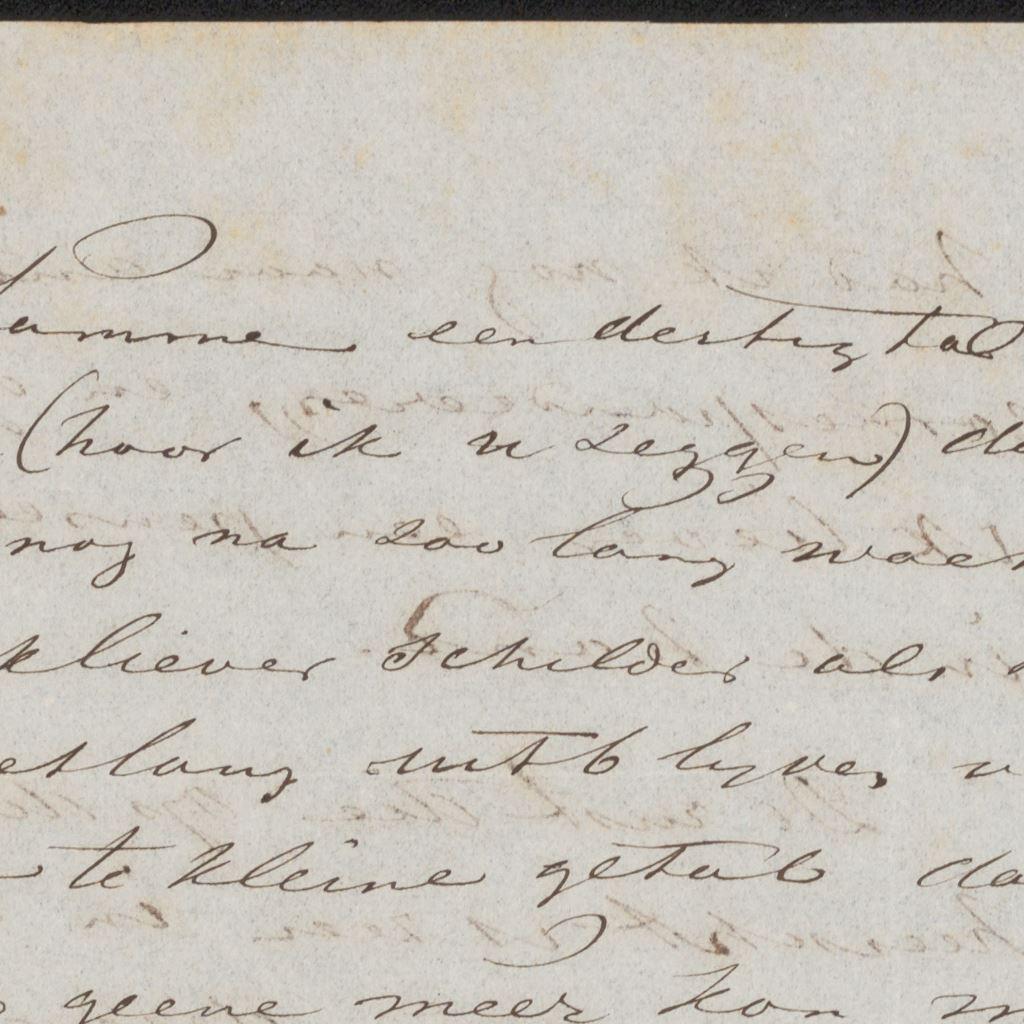 samme een dertigtal
(hoor ik u zeggen) da
nog na zoo lang wach
k liever schilder als
et lang uitblyven v
te kleine getal da
geene meer kon m